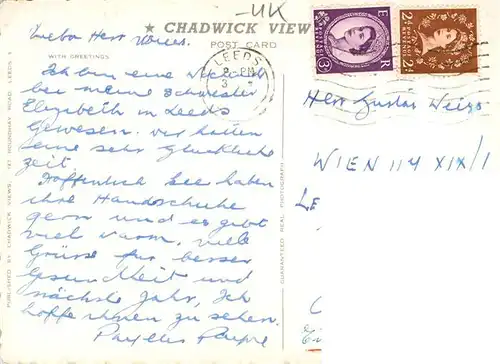 UK
★ CHADWICK VIEW
POST CARD
WITH GREETINGS
LEEDS
8 PM
E R
POSTAGE REVENUE
3D
2½D
Lieber Herr Weiss.
Ich bin eine Woche
bei meine Schwester
Elizabeth in Leeds
Gewesen. wir hatten
seine sehr Glückliche
Zeit.
Hoffenlich Sie haben
ihre Handschuhe
gern und es gibt
viel warm, viele
Grüsse fur besser
Gesundheit und
nächste Jahr, Ich
hoffe ihnen zu sehen.
Phyllis
Herr Gustav Weiss
WIEN 114 XIX/1
LE
PUBLISHED BY CHADWICK VIEWS, 147, ROUNDHAY ROAD, LEEDS 8
GUARANTEED REAL PHOTOGRAPH